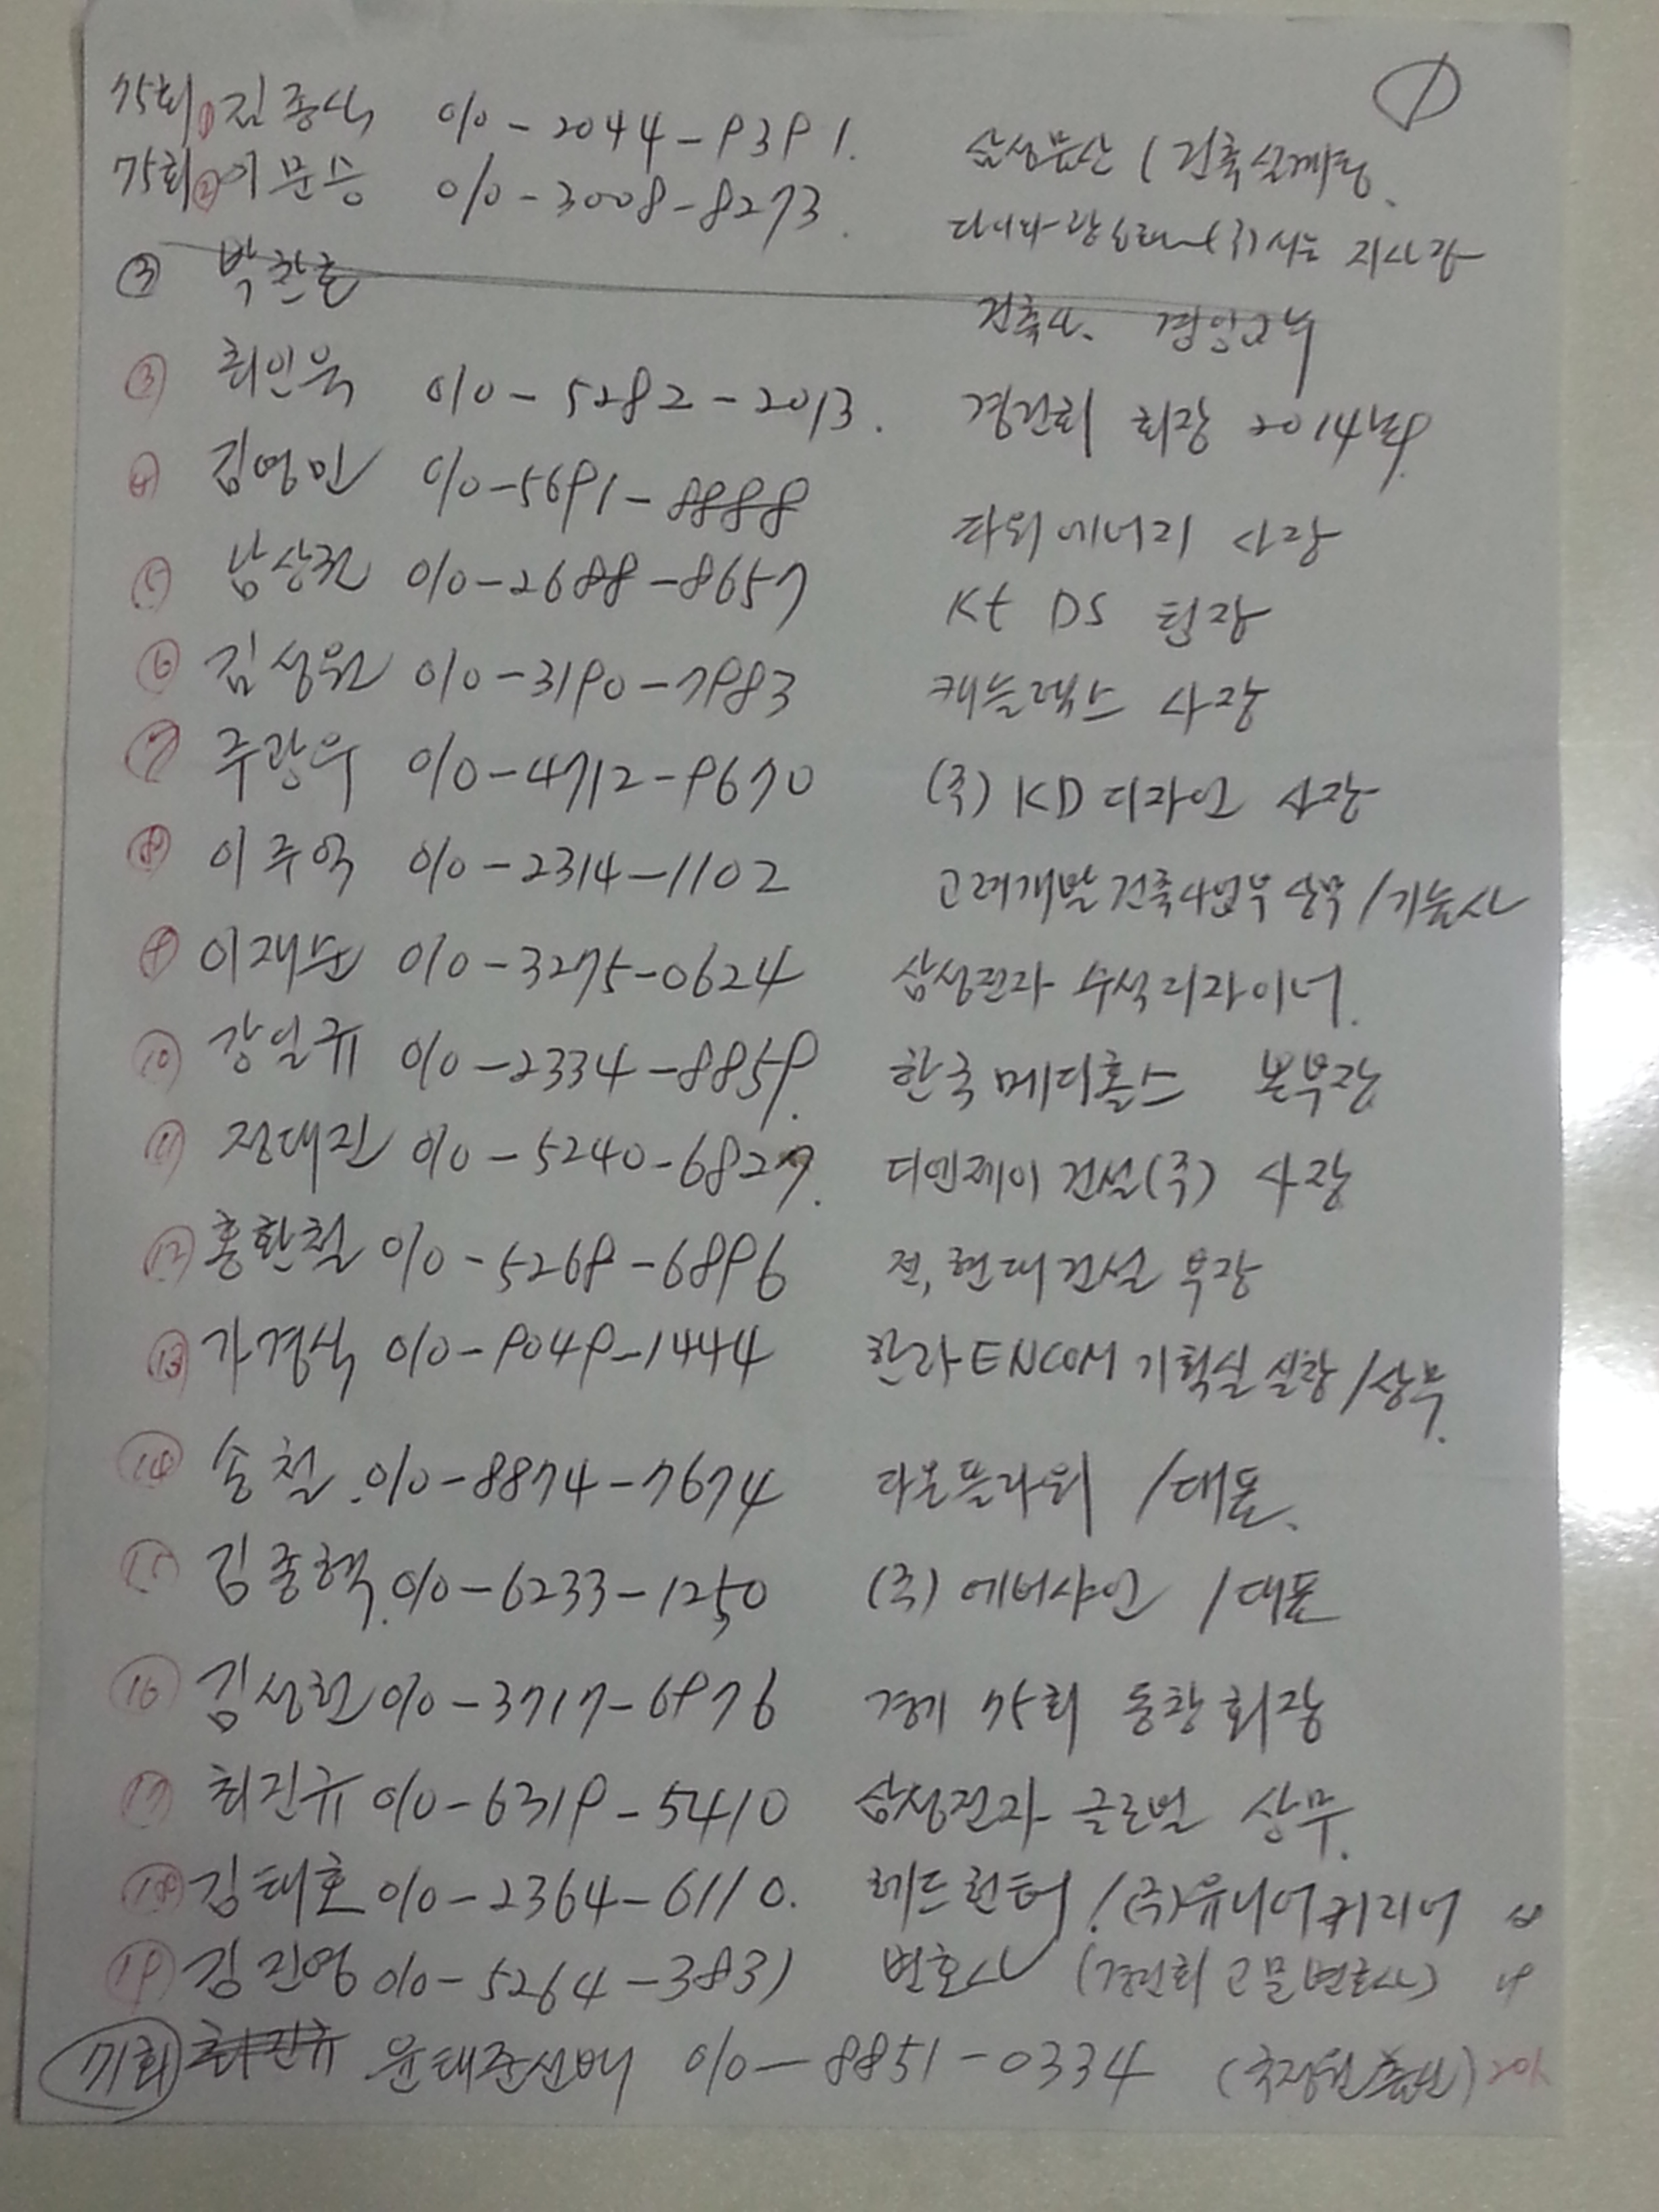 ①
75회 ① 김종식 010-2044-9391. 삼성물산 (건축설계팀.
75회 ② 이문승 010-3008-8273. (주) 서울 지사장
③ 박찬호 건축사. 경영고수
③ 최인욱 010-5282-2013. 경건회 회장 2014년
④ 김영민 010-5691-8888 파워에너지 사장
⑤ 남상권 010-2688-8657 Kt DS 팀장
⑥ 김성원 010-3190-7983 캐슬렉스 사장
⑦ 주광우 010-4712-9670 (주) KD 디자인 사장
⑧ 이주억 010-2314-1102 고려개발 건축사업부 상무 / 기술사
⑨ 이재문 010-3275-0624 삼성전자 수석디자이너.
⑩ 강일규 010-2334-8859. 한국메디홀스 본부장
⑪ 정대진 010-5240-6827. 디엔제이 건설(주) 사장
⑫ 홍환철 010-5268-6896 전, 현대건설 부장
⑬ 가경식 010-9049-1444 한라 ENCOM 기획실 실장 / 상무.
⑭ 송철. 010-8874-7674 다올플라워 / 대표.
⑮ 김종혁. 010-6233-1250 (주) 에버샤인 / 대표
⑯ 김성천 010-3717-6976 경기 75회 동창회장
⑰ 최진규 010-6319-5410 삼성전자 글로벌 상무.
⑱ 김태호 010-2364-6110. 헤드헌터 / (주)유니어커리어
⑲ 김진영 010-5264-3831 변호사 (경건회 고문변호사)
71회 최진규 윤태준선배 010-8851-0334 (국정원 출신)